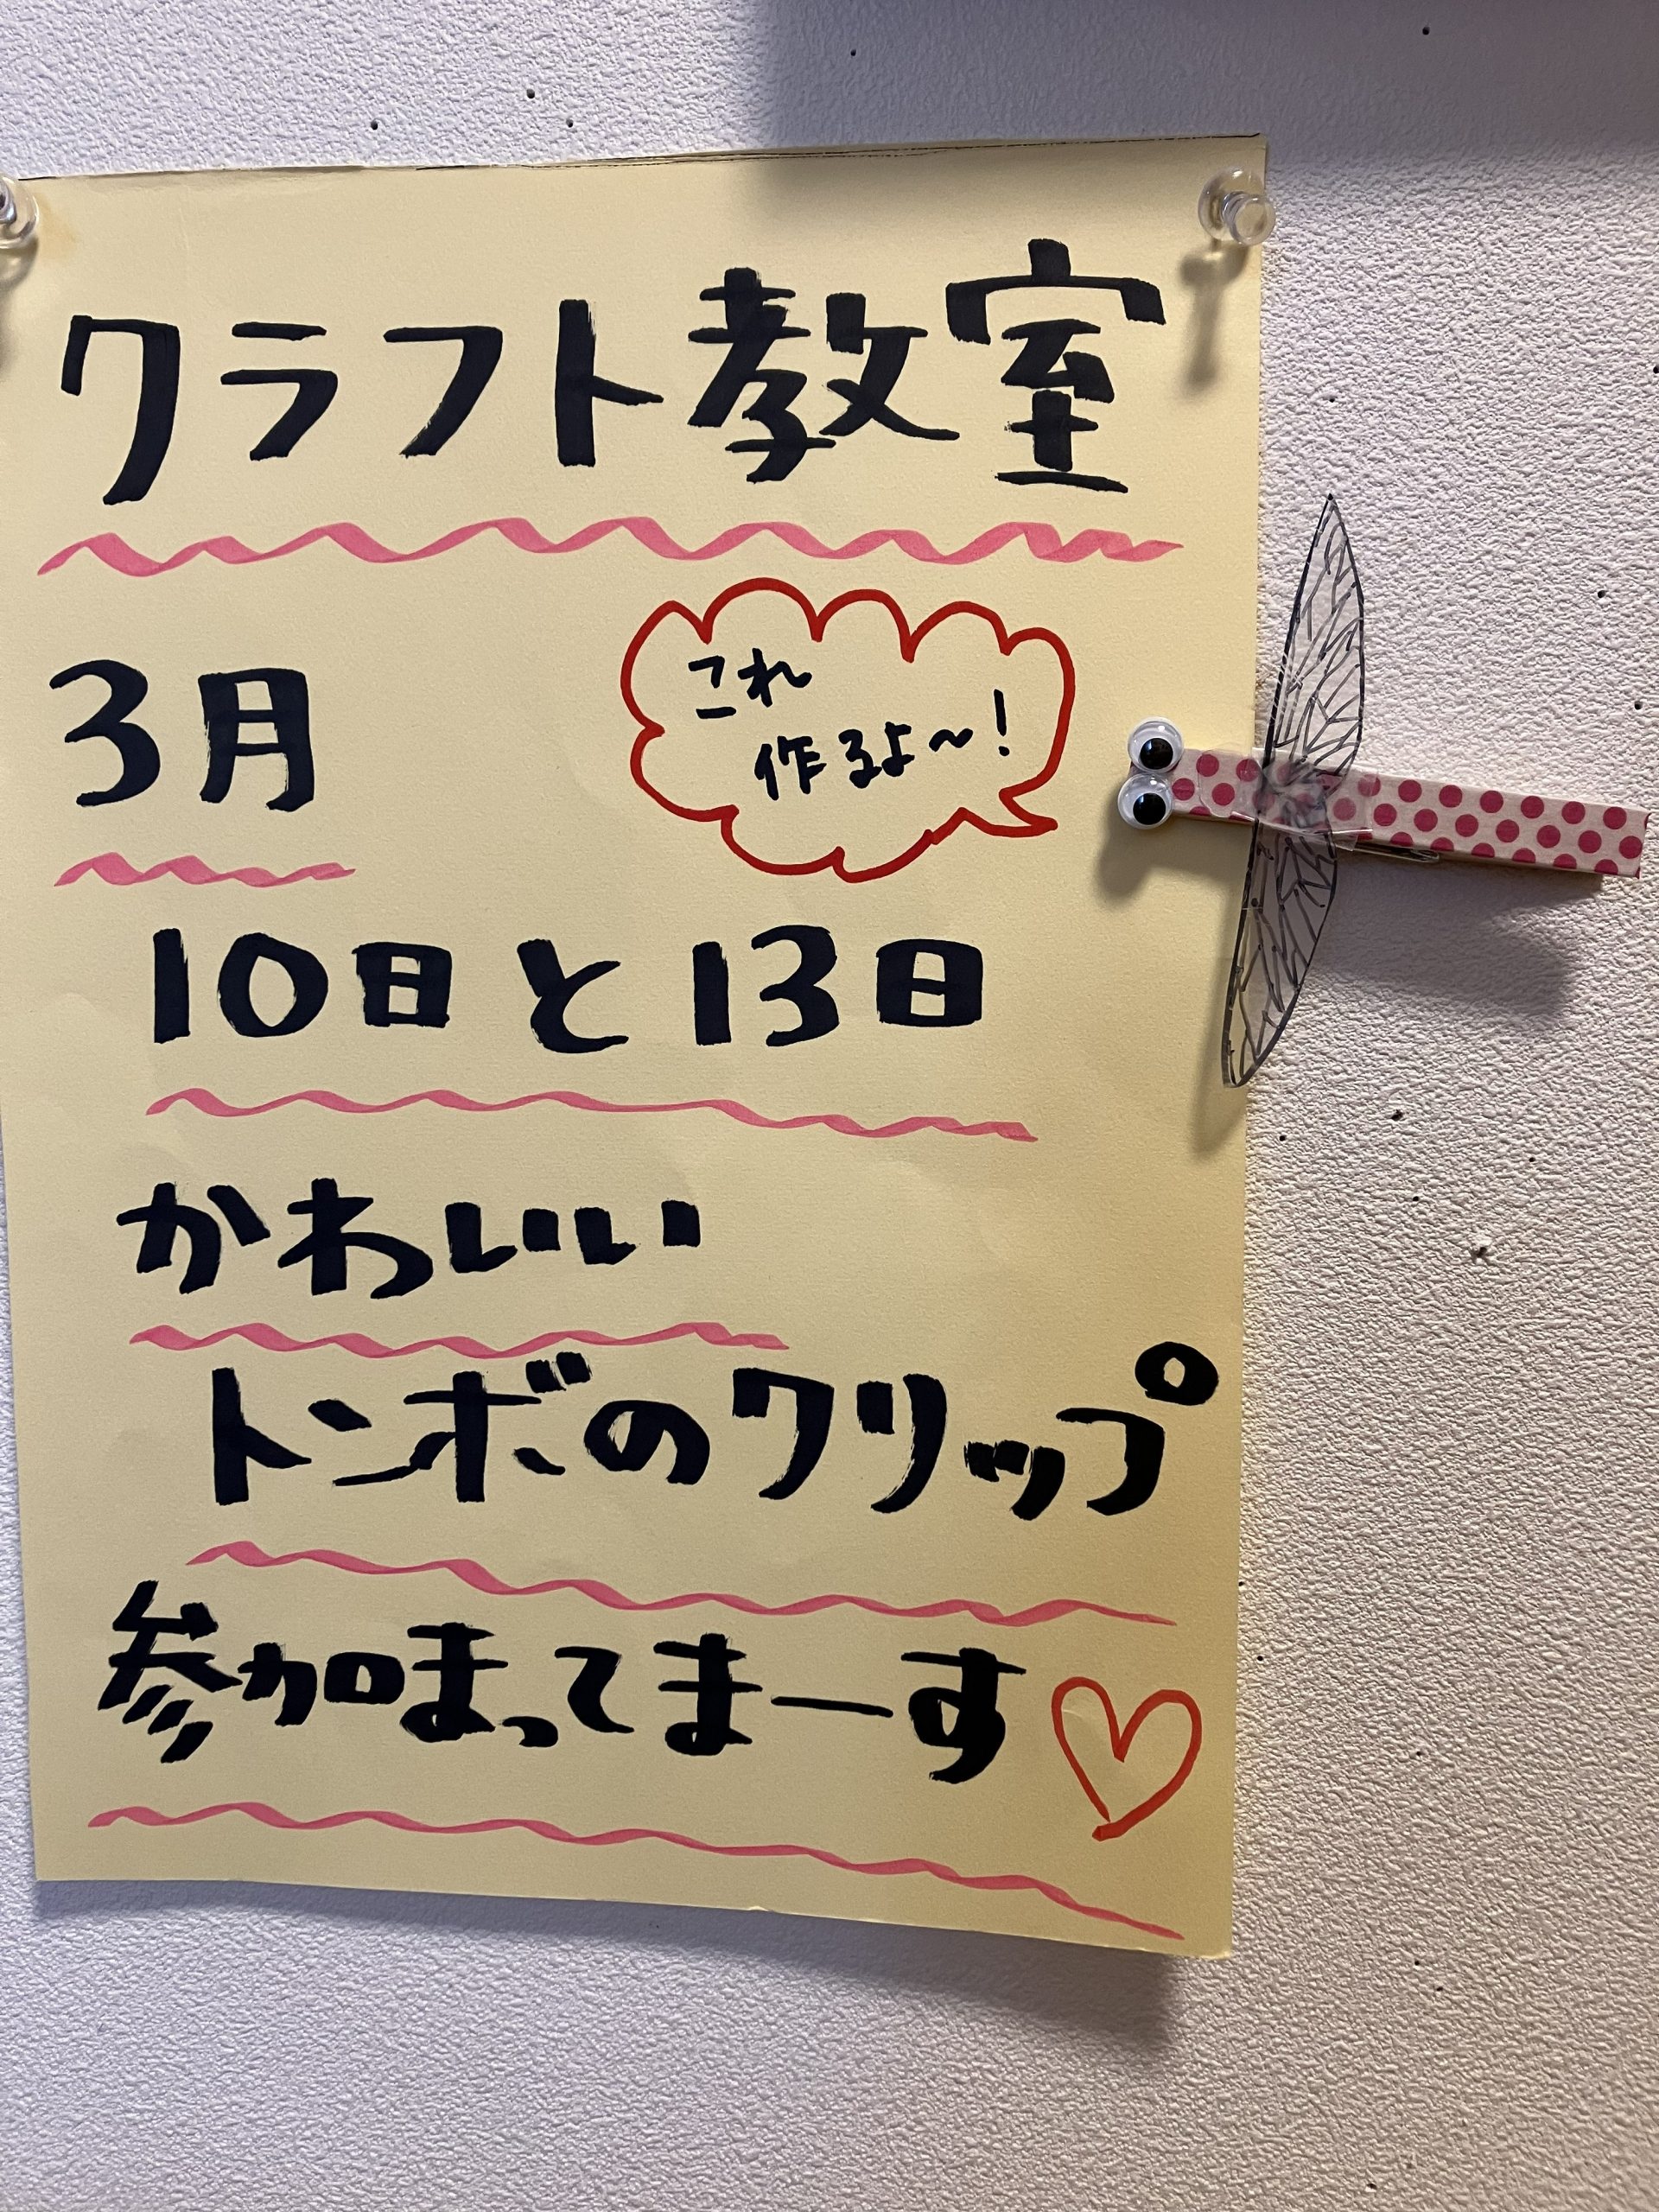 クラフト教室
3月
これ
作るよ〜!
10日と13日
かわいい
トンボのクリップ
参加まってまーす♡